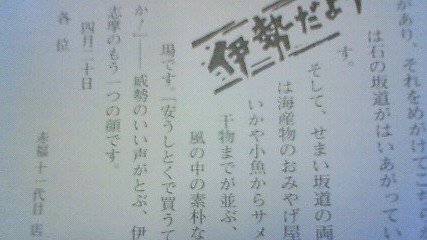 があり、それをめがけてこちらか
は石の坂道がはいあがってい
す。
伊勢だより
そして、せまい坂道の両
は海産物のおみやげ屋
いかや小魚からサメ
干物までが並ぶ、
風の中の素朴な
場です。「安うしとくで買うて
か!」――威勢のいい声がとぶ、伊
志摩のもう一つの顔です。
四月二十日
各位
赤福十一代目 店